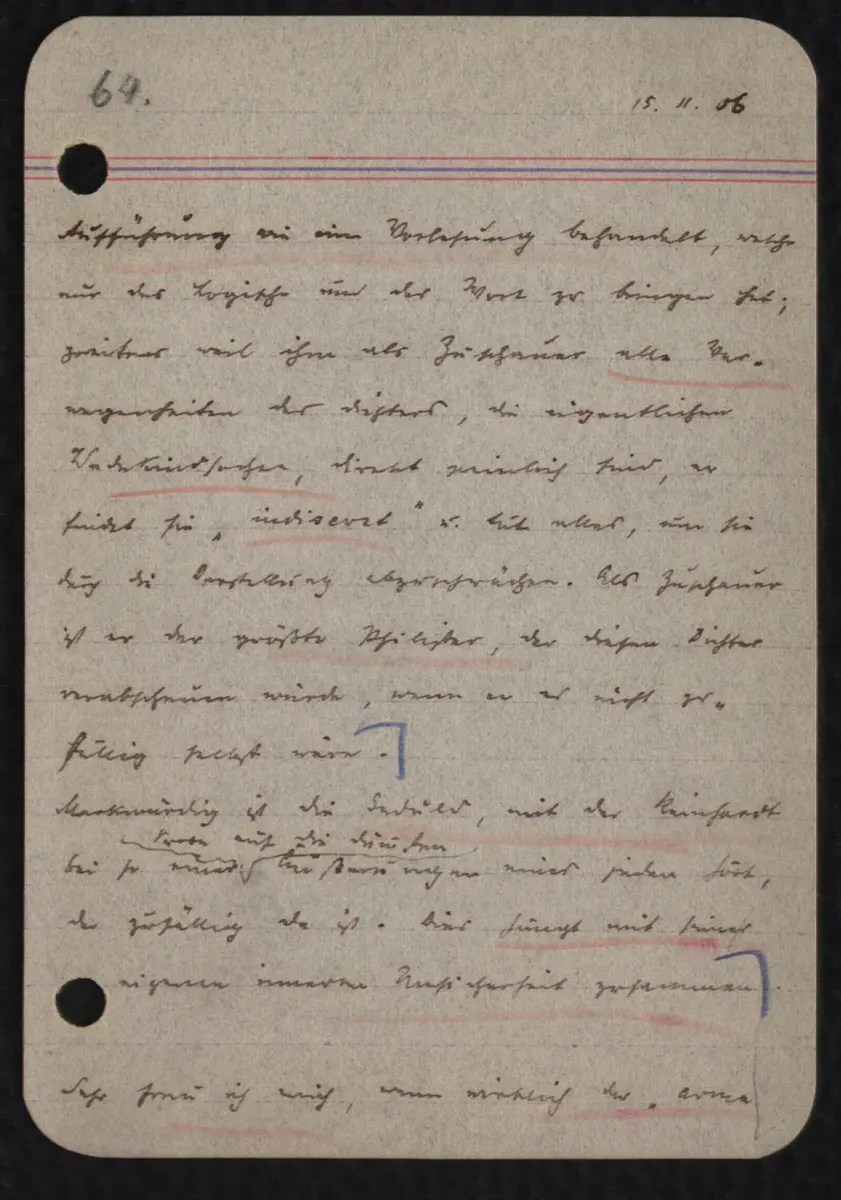 64.
15. 11. 06
Aufführung wie eine Vorlesung behandelt, welche
nur das Logische und das Wort zu bringen hat;
zweitens weil ihm als Zuschauer alle Ver-
wegenheiten des Dichters, die eigentlichen
Wedekindsachen, direkt peinlich sind, er
findet sie „indiscret" u. tut alles, um sie
durch die Darstellung abzuschwächen. Als Zuschauer
ist er der größte Philister, der diesen Dichter
verabscheuen würde, wenn er es nicht zu-
fällig selbst wäre.
Merkwürdig ist die Geduld, mit der Reinhardt
bei so einer Probe auf die dümmsten
Äußerungen eines jeden hört,
der zufällig da ist. Dies hängt mit seiner
eigenen inneren Unsicherheit zusammen.
Sehr freu ich mich, wenn wirklich der „arme